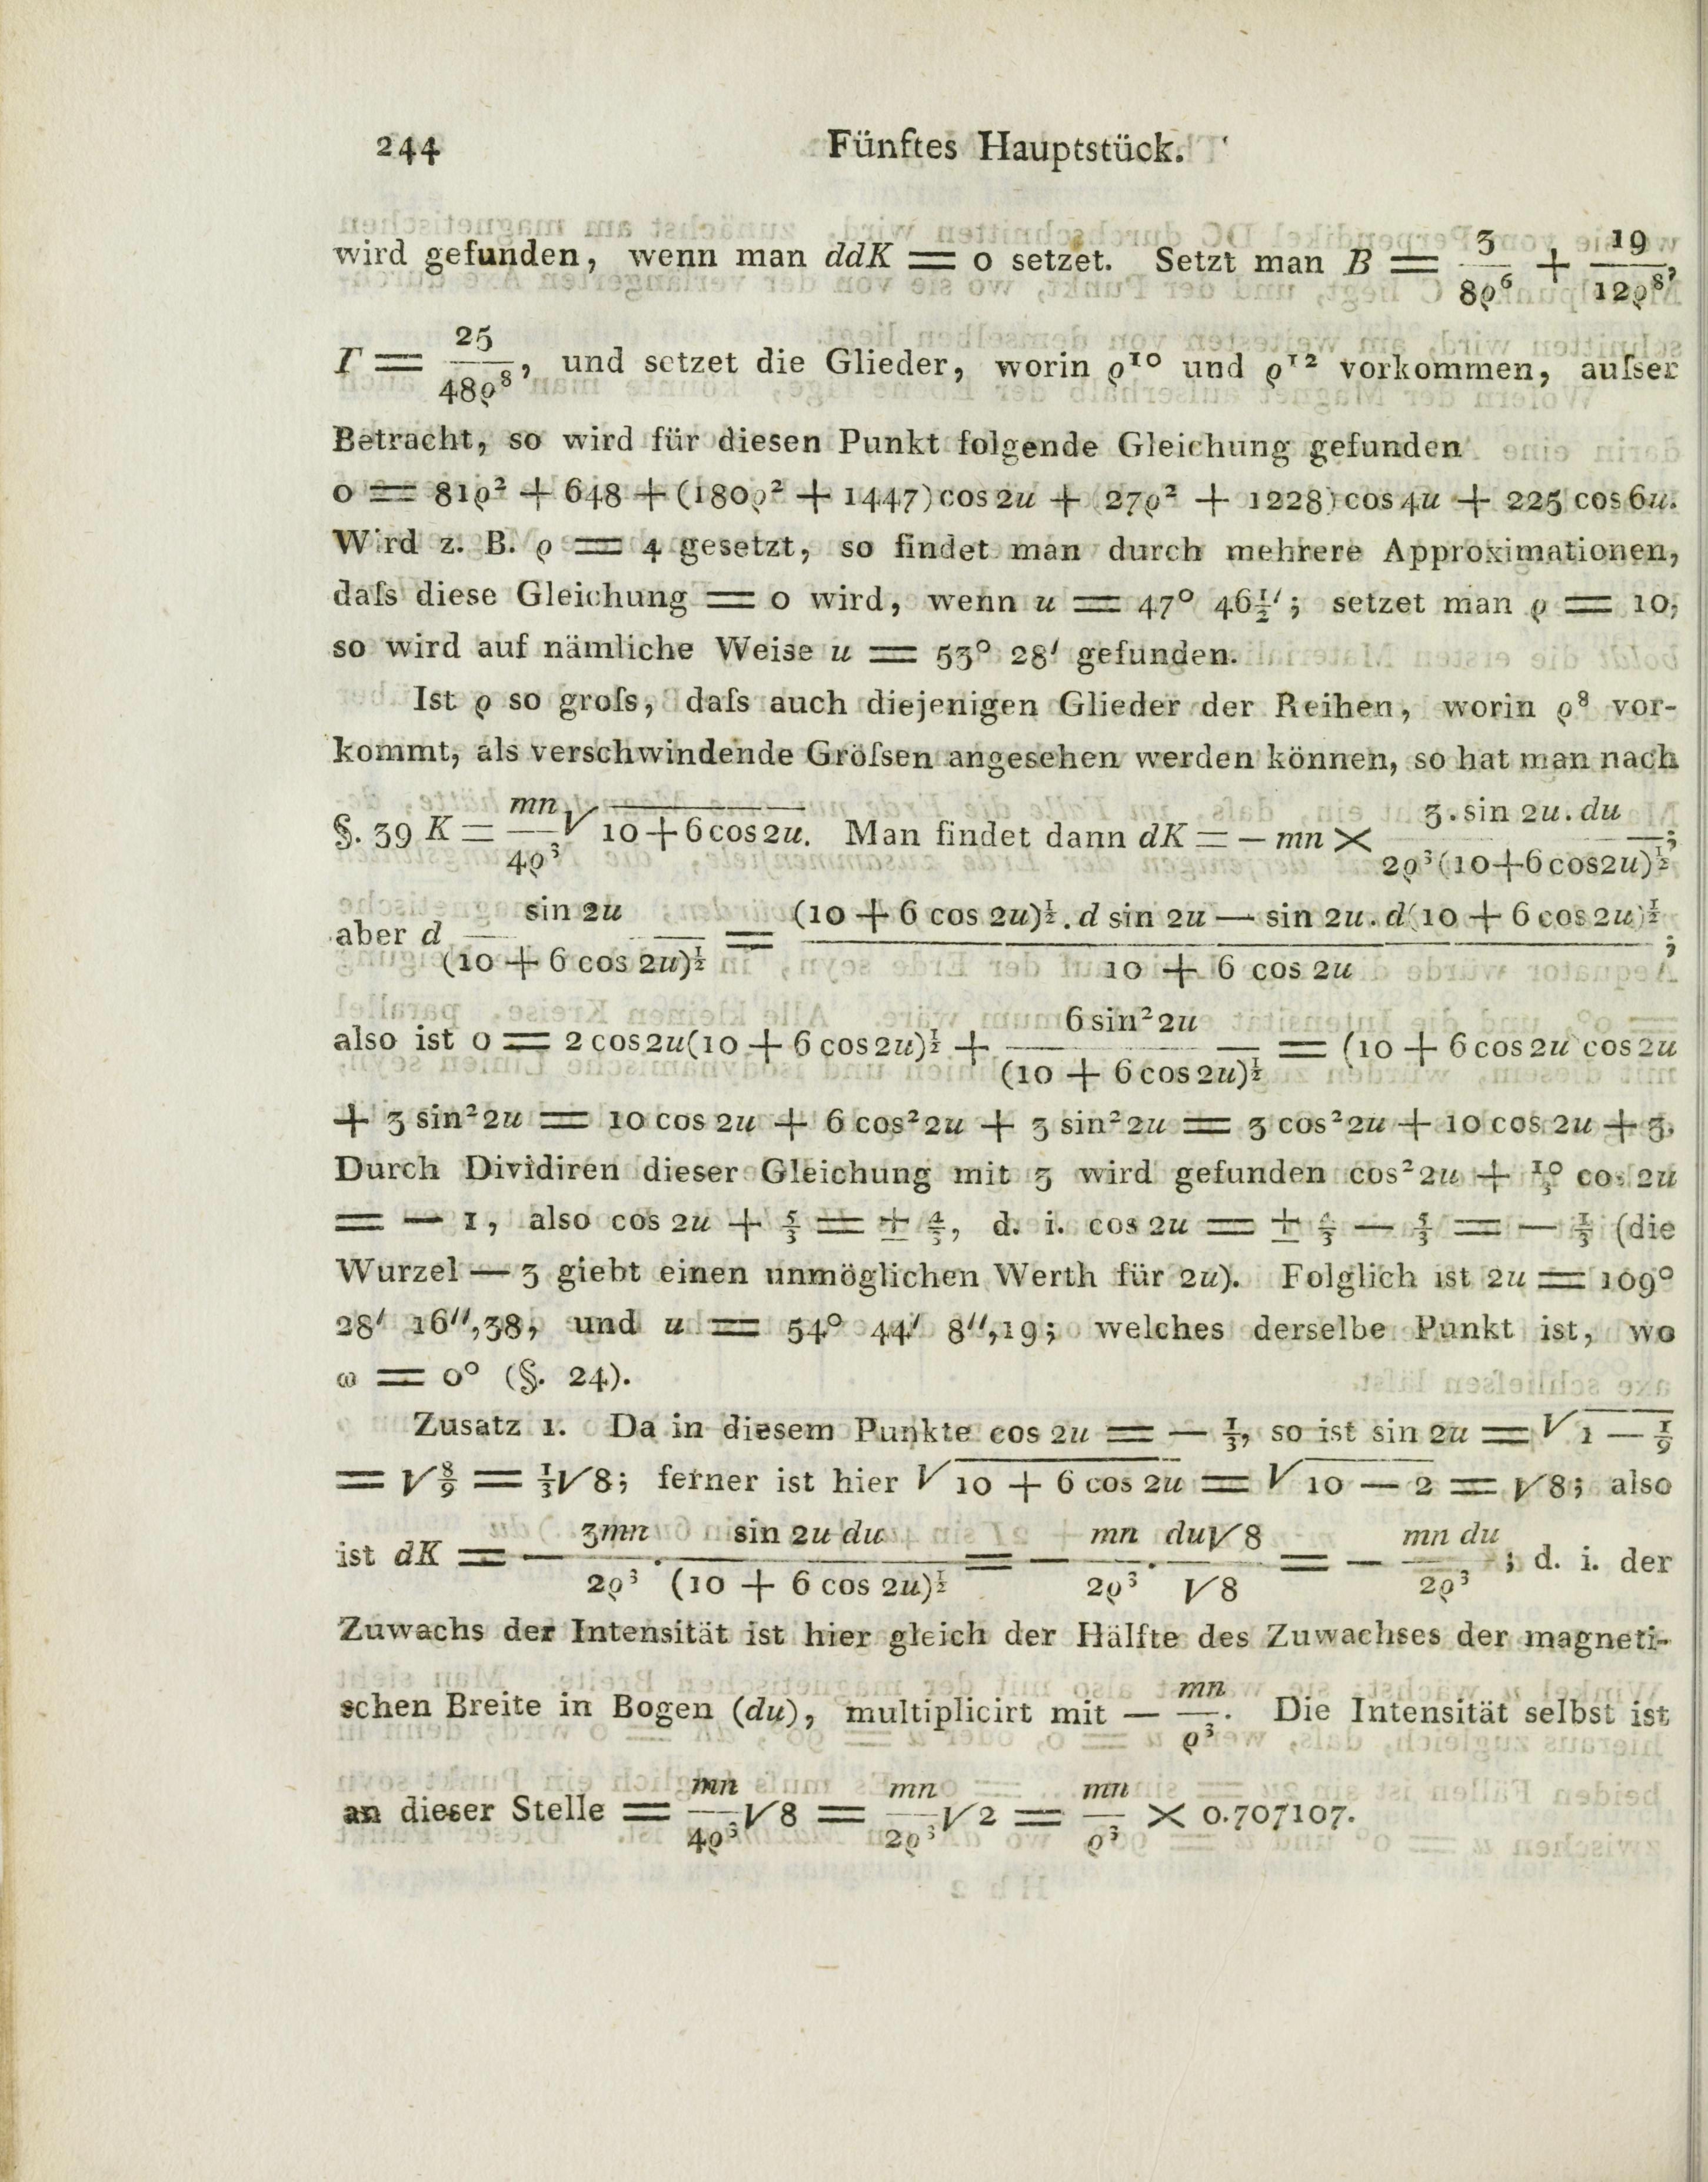 244 Fünftes Hauptstück.
wird gefunden, wenn man ddK = 0 setzet. Setzt man B = 3/8ϱ⁶ + 19/12ϱ⁸,
Γ = 25/48ϱ⁸, und setzet die Glieder, worin ϱ¹⁰ und ϱ¹² vorkommen, auſser
Betracht, so wird für diesen Punkt folgende Gleichung gefunden
0 = 81ϱ² + 648 + (180ϱ² + 1447) cos 2u + (27ϱ² + 1228) cos 4u + 225 cos 6u.
Wird z. B. ϱ = 4 gesetzt, so findet man durch mehrere Approximationen,
daſs diese Gleichung = 0 wird, wenn u = 47° 46½′; setzet man ϱ = 10,
so wird auf nämliche Weise u = 53° 28′ gefunden.
Ist ϱ so groſs, daſs auch diejenigen Glieder der Reihen, worin ϱ⁸ vor-
kommt, als verschwindende Gröſsen angesehen werden können, so hat man nach
§. 39 K = mn/4ϱ³ √(10 + 6 cos 2u). Man findet dann dK = — mn × 3 . sin 2u . du/2ϱ³(10 + 6 cos 2u)^½;
aber d sin 2u/(10 + 6 cos 2u)^½ = (10 + 6 cos 2u)^½ . d sin 2u — sin 2u . d(10 + 6 cos 2u)^½/10 + 6 cos 2u;
also ist 0 = 2 cos 2u(10 + 6 cos 2u)^½ + 6 sin² 2u/(10 + 6 cos 2u)^½ = (10 + 6 cos 2u cos 2u
+ 3 sin² 2u = 10 cos 2u + 6 cos² 2u + 3 sin² 2u = 3 cos² 2u + 10 cos 2u + 3.
Durch Dividiren dieser Gleichung mit 3 wird gefunden cos² 2u + 10/3 cos 2u
= — 1, also cos 2u + 5/3 = ± 4/3, d. i. cos 2u = ± 4/3 — 5/3 = — 1/3 (die
Wurzel — 3 giebt einen unmöglichen Werth für 2u). Folglich ist 2u = 109°
28′ 16″,38, und u = 54° 44′ 8″,19; welches derselbe Punkt ist, wo
ω = 0° (§. 24).
Zusatz 1. Da in diesem Punkte cos 2u = — 1/3, so ist sin 2u = √(1 — 1/9)
= √8/9 = 1/3√8; ferner ist hier √(10 + 6 cos 2u) = √(10 — 2) = √8; also
ist dK = — 3mn/2ϱ³ . sin 2u du/(10 + 6 cos 2u)^½ = — mn/2ϱ³ . du√8/√8 = — mn du/2ϱ³; d. i. der
Zuwachs der Intensität ist hier gleich der Hälfte des Zuwachses der magneti-
schen Breite in Bogen (du), multiplicirt mit — mn/ϱ³. Die Intensität selbst ist
an dieser Stelle = mn/4ϱ³ √8 = mn/2ϱ³ √2 = mn/ϱ³ × 0.707107.